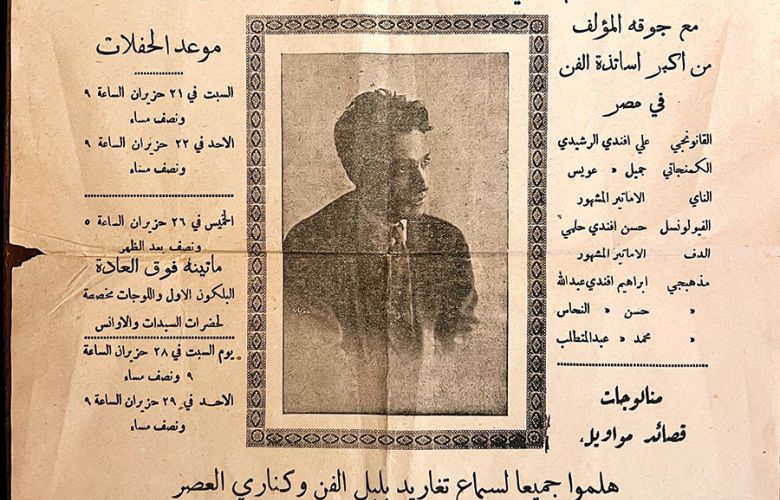 مع جوقه المؤلف
من اكبر اساتذة الفن
في مصر
القانونجي علي افندي الرشيدي
الكمنجاتي جميل « عويس
الناي الاماتير المشهور
الفيولونسل حسن افندي حلمي
الدف الاماتير المشهور
مذهبجي ابراهيم افندي عبدالله
« حسن « النحاس
« محمد « عبدالمتطلب
منالوجات
قصائد مواويل.
موعد الحفلات
السبت في ٢١ حزيران الساعة ٩
ونصف مساء
الاحد في ٢٢ حزيران الساعة ٩
ونصف مساء
الخميس في ٢٦ حزيران الساعة ٥
ونصف بعد الظهر
ماتينه فوق العادة
البلكون الاول واللوجات مخصصة
لحضرات السيدات والاوانس
يوم السبت في ٢٨ حزيران الساعة
٩ ونصف مساء
الاحد في ٢٩ حزيران الساعة ٩
ونصف مساء
هلموا جميعا لسماع تغاريد بلبل الفن وكناري العصر